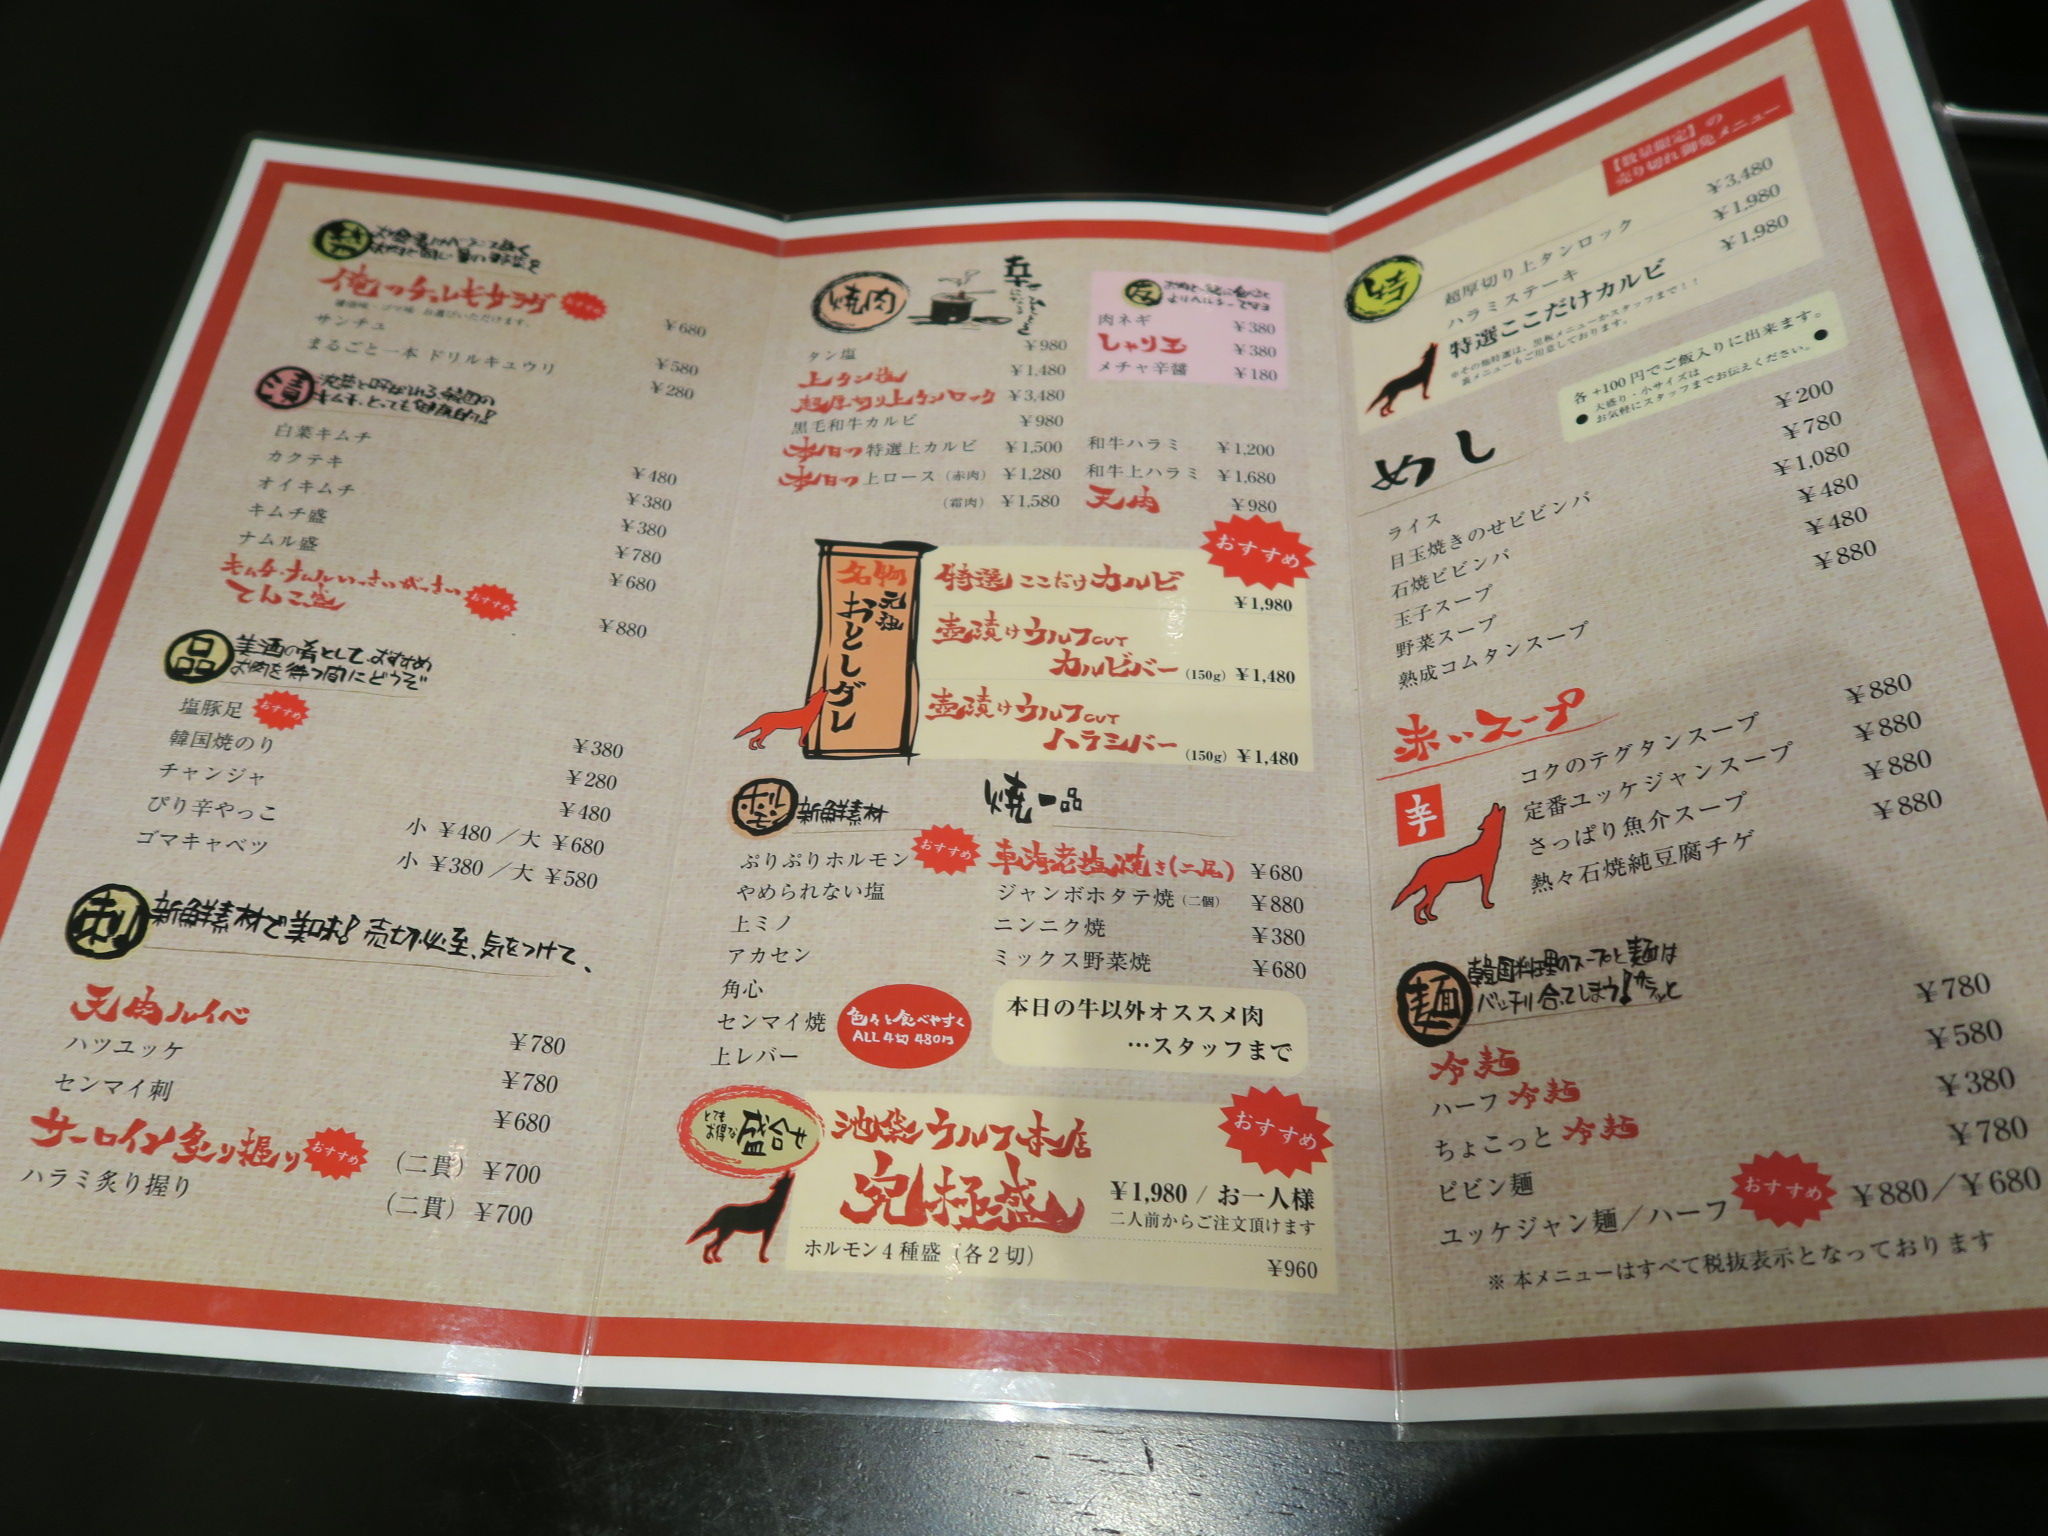 俺のチョレギサラダ おすすめ ¥680
醤油味・ゴマ味 お選びいただけます。
サンチュ ¥580
まるごと一本 ドリルキュウリ ¥280
漬
白菜キムチ ¥480
カクテキ ¥380
オイキムチ ¥380
キムチ盛 ¥780
ナムル盛 ¥680
キムチ・ナムルいっさいがっさい
てんこ盛 おすすめ ¥880
品 美酒の肴として、おすすめ
お肉を待つ間にどうぞ
塩豚足 おすすめ ¥380
韓国焼のり ¥280
チャンジャ ¥480
ぴり辛やっこ 小 ¥480／大 ¥680
ゴマキャベツ 小 ¥380／大 ¥580
刺 新鮮素材で美味!売切必至、気をつけて、
天肉ルイベ ¥780
ハツユッケ ¥780
センマイ刺 ¥680
サーロイン炙り握り おすすめ （二貫）¥700
ハラミ炙り握り （二貫）¥700
焼肉
タン塩 ¥980
上タン塩 ¥1,480
超厚切り上タンロック ¥3,480
黒毛和牛カルビ ¥980
本日の特選上カルビ ¥1,500
本日の上ロース（赤肉） ¥1,280
（霜肉） ¥1,580
友
肉ネギ ¥380
しゃり玉 ¥380
メチャ辛醤 ¥180
和牛ハラミ ¥1,200
和牛上ハラミ ¥1,680
天肉 ¥980
名物
元祖
おとしダレ
おすすめ
特選ここだけカルビ
¥1,980
壺漬けウルフCUT
カルビバー（150g）¥1,480
壺漬けウルフCUT
ハラミバー（150g）¥1,480
ホルモン 新鮮素材
ぷりぷりホルモン おすすめ
やめられない塩
上ミノ
アカセン
角心
センマイ焼
上レバー
色々と食べやすく
ALL 4切 480円
焼一品
車海老塩焼き(二尾) ¥680
ジャンボホタテ焼（二個） ¥880
ニンニク焼 ¥380
ミックス野菜焼 ¥680
本日の牛以外オススメ肉
…スタッフまで
とてもお得な 盛合せ
池袋ウルフ本店 おすすめ
究極盛 ¥1,980 / お一人様
二人前からご注文頂けます
ホルモン4種盛（各2切） ¥960
【数量限定】の
売り切れ御免メニュー
特
超厚切り上タンロック ¥3,480
ハラミステーキ ¥1,980
特選ここだけカルビ ¥1,980
※その他特選は、黒板メニューかスタッフまで！！
裏メニューもご用意しております。
各+100円でご飯入りに出来ます。
大盛り・小サイズは
● お気軽にスタッフまでお伝えください。 ●
めし
ライス ¥200
目玉焼きのせビビンバ ¥780
石焼ビビンバ ¥1,080
玉子スープ ¥480
野菜スープ ¥480
熟成コムタンスープ ¥880
赤いスープ
辛
コクのテグタンスープ ¥880
定番ユッケジャンスープ ¥880
さっぱり魚介スープ ¥880
熱々石焼純豆腐チゲ ¥880
麺 韓国料理のスープと麺は
バッチリ合ってしまう!
冷麺 ¥780
ハーフ冷麺 ¥580
ちょこっと冷麺 ¥380
ビビン麺 ¥780
ユッケジャン麺／ハーフ おすすめ ¥880／¥680
※本メニューはすべて税抜表示となっております